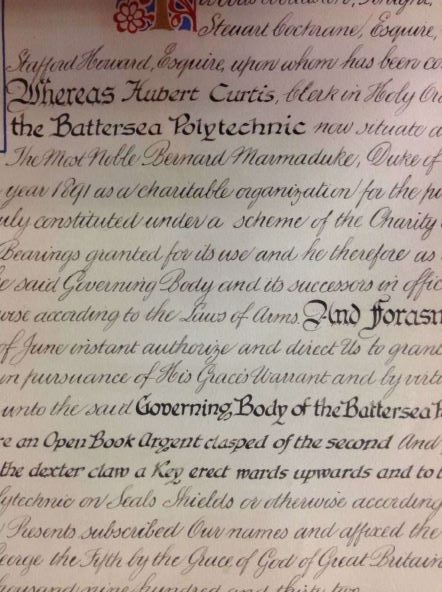 Stewart Cochrane, Esquire,
Stafford Howard, Esquire, upon whom has been co
Whereas Hubert Curtis, Clerk in Holy Or
the Battersea Polytechnic now situate a
The Most Noble Bernard Marmaduke, Duke of
year 1891 as a charitable organization for the pu
uly constituted under a scheme of the Charity
Bearings granted for its use and he therefore as
e said Governing Body and its successors in offic
wise according to the Laws of Arms. And Forasm
of June instant authorize and direct Us to gran
in pursuance of His Grace's Warrant and by virt
unto the said Governing Body of the Battersea P
re an Open Book Argent clasped of the second And f
the dexter claw a Key erect wards upwards and to b
lytechnic on Seals Shields or otherwise according
Presents subscribed Our names and affixed the
George the Fifth by the Grace of God of Great Britain
thousand nine hundred and thirty two